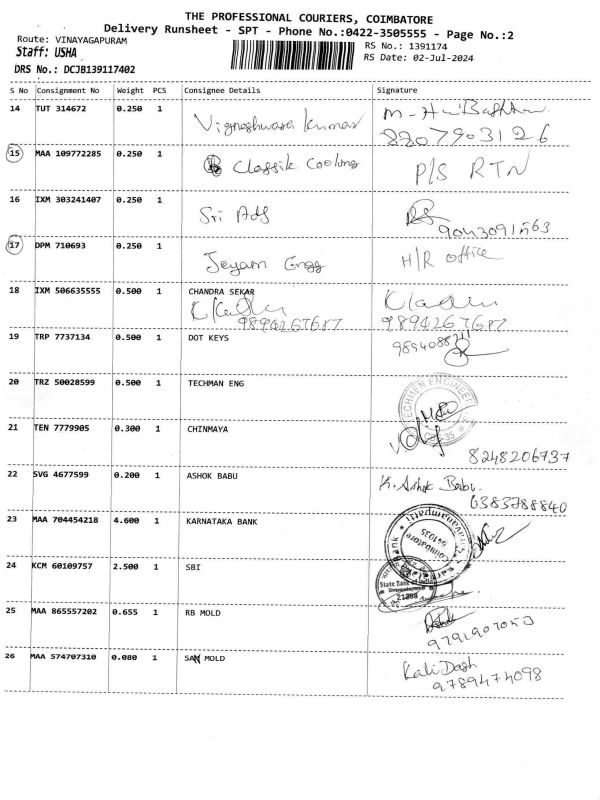 THE PROFESSIONAL COURIERS, COIMBATORE
Delivery Runsheet - SPT - Phone No.:0422-3505555 - Page No.:2
Route: VINAYAGAPURAM
RS No.: 1391174
Staff: USHA
RS Date: 02-Jul-2024
DRS No.: DCJB139117402
S No Consignment No Weight PCS Consignee Details Signature
14 TUT 314672 0.250 1 Vigneshwara Kumar
8807903126
15 MAA 109772285 0.250 1 Classik Cooking P/S RTN
16 IXM 303241407 0.250 1 Sri Ads
17 DPM 710693 0.250 1 Jeyam Engg H/R office
18 IXM 506635555 0.500 1 CHANDRA SEKAR
9894267687 9894267687
19 TRP 7737134 0.500 1 DOT KEYS
20 TRZ 50028599 0.500 1 TECHMAN ENG
21 TEN 7779905 0.300 1 CHINMAYA
8248206737
22 SVG 4677599 0.200 1 ASHOK BABU K. Ashok Babu
6383788840
23 MAA 704454218 4.600 1 KARNATAKA BANK
24 KCM 60109757 2.500 1 SBI
State Bank of India
25 MAA 865557202 0.655 1 RB MOLD
9791907053
26 MAA 574707310 0.080 1 SAN MOLD Kali Dash
9789474098